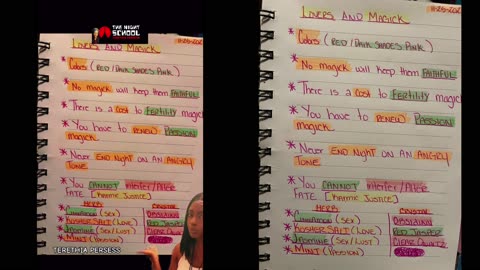 THE NIGHT
SCHOOL
LOVERS AND MAGICK
* Colors (RED/DARK SHADES PINK)
* No magick will keep them FAITHFUL
* There is a COST to FERTILITY magic
* You have to RENEW PASSION
magick.
* Never END Night ON AN ANGRY
TONE
* You CANNOT Interfer/Alter
FATE [Karmic Justice]
HERB
CRYSTAL
* Cinnamon (SEX)
OBSIDIAN
* KOSHER SALT (Love)
RED JASPER
* Jasmine (SEX/LUST)
CLEAR QUARTZ
* MINT (PASSION)
TERETHIA PERSESS
LOVERS AND MAGICK
* Colors (RED/DARK SHADES PINK)
* No magick will keep them FAITHFUL
* There is a COST to FERTILITY magic
* You have to RENEW PASSION
magick.
* Never END Night ON AN ANGRY
TONE
* You CANNOT Interfer/Alter
FATE [Karmic Justice]
HERB
CRYSTAL
* Cinnamon (SEX)
OBSIDIAN
* KOSHER SALT (Love)
RED JASPER
* Jasmine (SEX/LUST)
CLEAR QUARTZ
* MINT (PASSION)